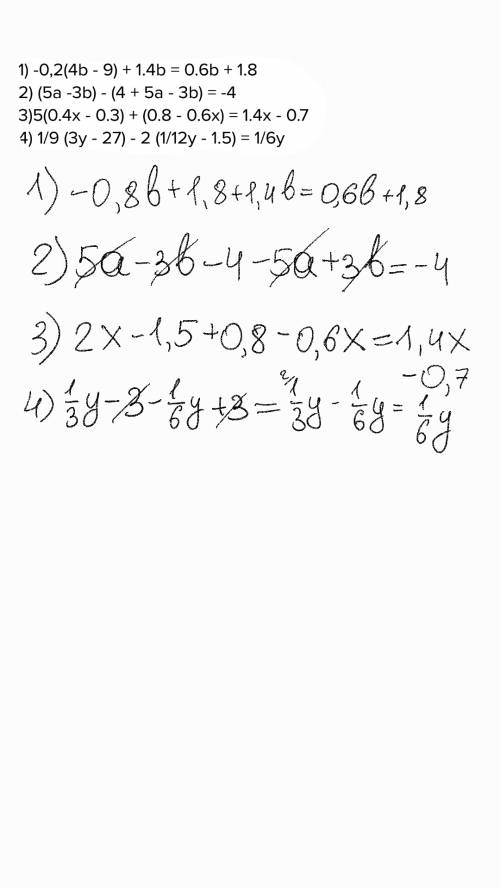 1) -0,2(4b - 9) + 1.4b = 0.6b + 1.8
2) (5a -3b) - (4 + 5a - 3b) = -4
3)5(0.4x - 0.3) + (0.8 - 0.6x) = 1.4x - 0.7
4) 1/9 (3y - 27) - 2 (1/12y - 1.5) = 1/6y
1) -0,8b+1,8+1,4b=0,6b+1,8
2) 5a-3b-4-5a+3b=-4
3) 2x-1,5+0,8-0,6x=1,4x
-0,7
4) 1/3y-3-1/6y+3= 2/1/3y-1/6y=1/6y